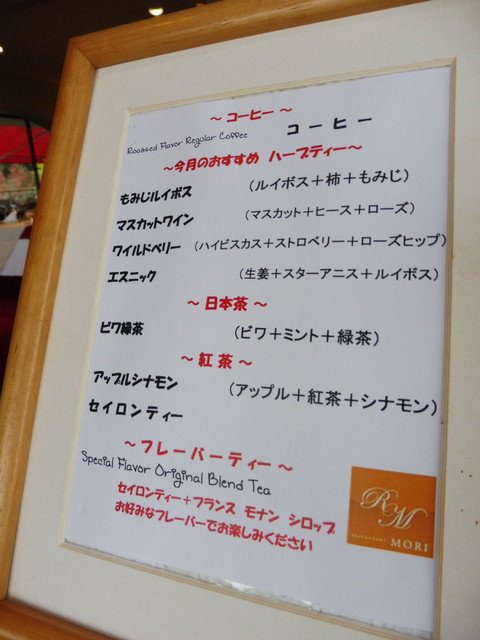 ～ コーヒー ～
Roasted Flavor Regular Coffee コーヒー
～今月のおすすめ ハーブティー～
もみじルイボス （ルイボス＋柿＋もみじ）
マスカットワイン （マスカット＋ヒース＋ローズ）
ワイルドベリー （ハイビスカス＋ストロベリー＋ローズヒップ）
エスニック （生姜＋スターアニス＋ルイボス）
～ 日本茶 ～
ビワ緑茶 （ビワ＋ミント＋緑茶）
～ 紅茶 ～
アップルシナモン （アップル＋紅茶＋シナモン）
セイロンティー
～ フレーバーティー ～
Special Flavor Original Blend Tea
セイロンティー＋フランス モナン シロップ
お好みなフレーバーでお楽しみください
RM
RESTAURANT MORI